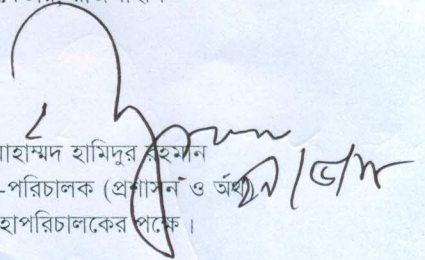 াহাম্মদ হামিদুর রহমান
-পরিচালক (প্রশাসন ও অর্থ)
হাপরিচালকের পক্ষে।